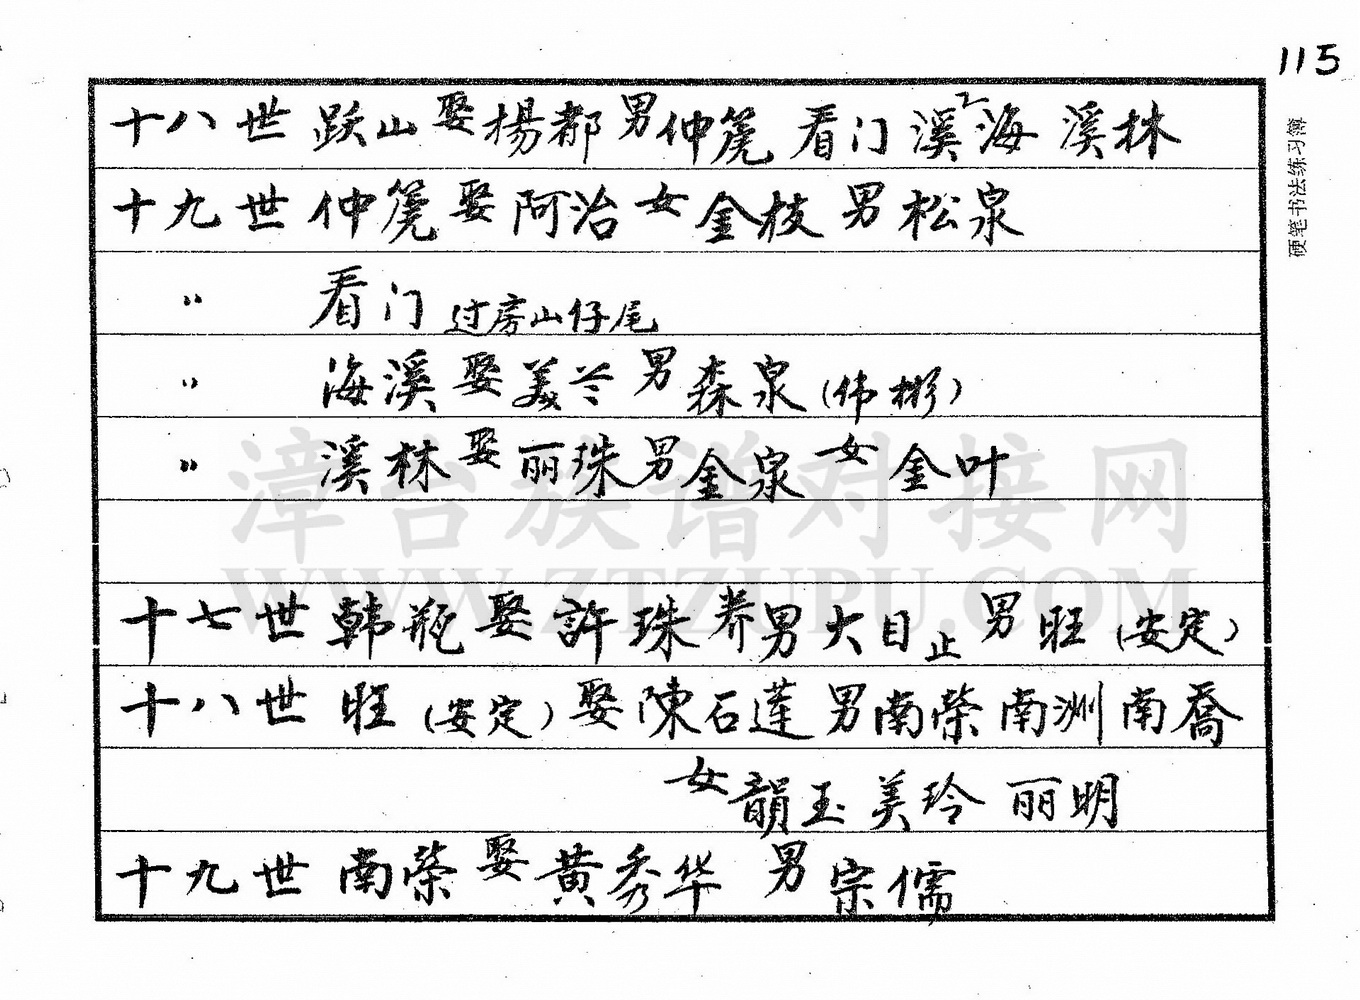 115
十八世 跃山 娶 楊都 男 仲篪 看门 溪海 溪林
十九世 仲篪 娶 阿治 女 金枝 男 松泉
〃 看门 过房山仔尾
〃 海溪 娶 美兰 男 森泉（伟彬）
〃 溪林 娶 丽珠 男 金泉 女 金叶
十七世 韩瓶 娶 許珠 养男 大目 止 男 旺（安定）
十八世 旺（安定）娶 陳石莲 男 南荣 南洲 南喬
女 韻玉 美玲 丽明
十九世 南荣 娶 黄秀华 男 宗儒
硬笔书法练习簿
漳台族谱对接网
WWW.ZTZUPU.COM